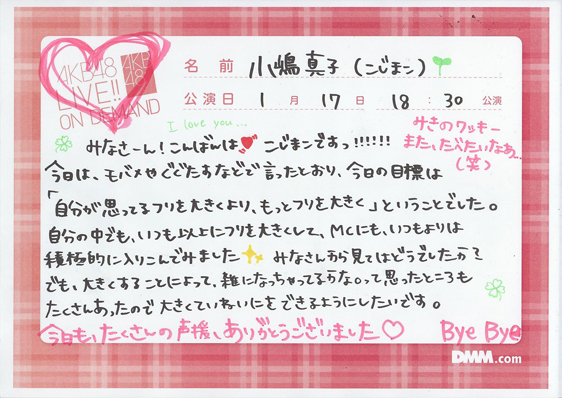 AKB48
LIVE!!
ON DEMAND
AKB
48
名前 小嶋真子(こじまこ)
公演日 1月17日 18:30公演
I love you...
みなさーん!こんばんは こじまこですっ!!!!!!
みきのクッキー
また、たべたいなぁ...
(笑)
今日は、モバメやぐぐたすなどで言ったとおり、今日の目標は
「自分が思ってるフリを大きくより、もっとフリを大きく」ということでした。
自分の中でも、いつも以上にフリを大きくして、MCにも、いつもよりは
積極的に入りこんでみました みなさんから見てはどうでしたか?
でも、大きくすることによって、雑になっちゃってるかな。って思ったところも
たくさんあったので大きくていねいにをできるようにしたいです。
今日も、たくさんの声援、ありがとうございました♡ Bye Bye
DMM.com